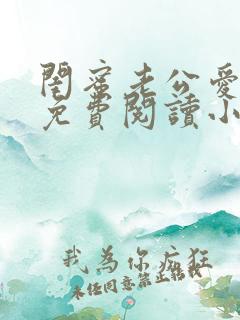 閨蜜老公愛
免費閱讀小
我為你瘋狂
未经同意禁止转载